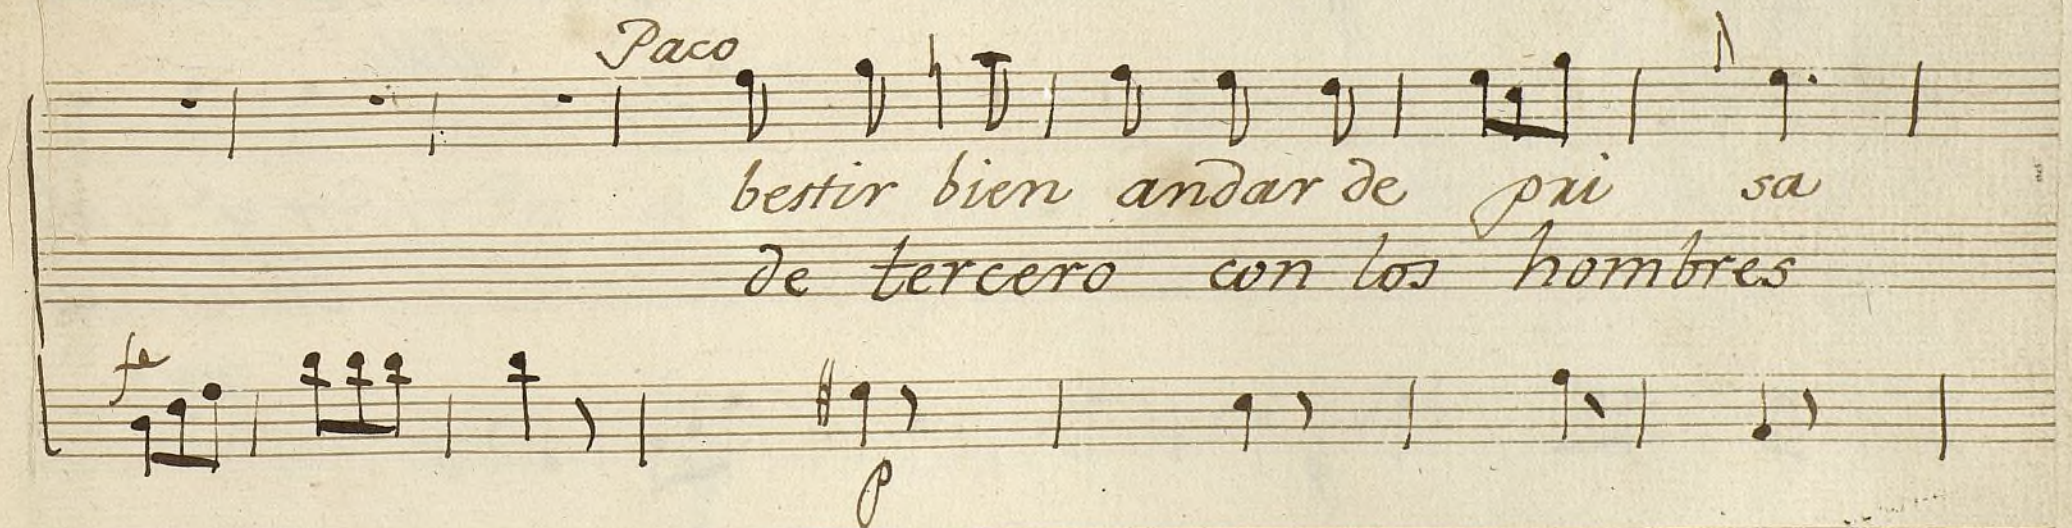 Paco
bestir bien andar de pri sa
de tercero con los hombres
fe
p